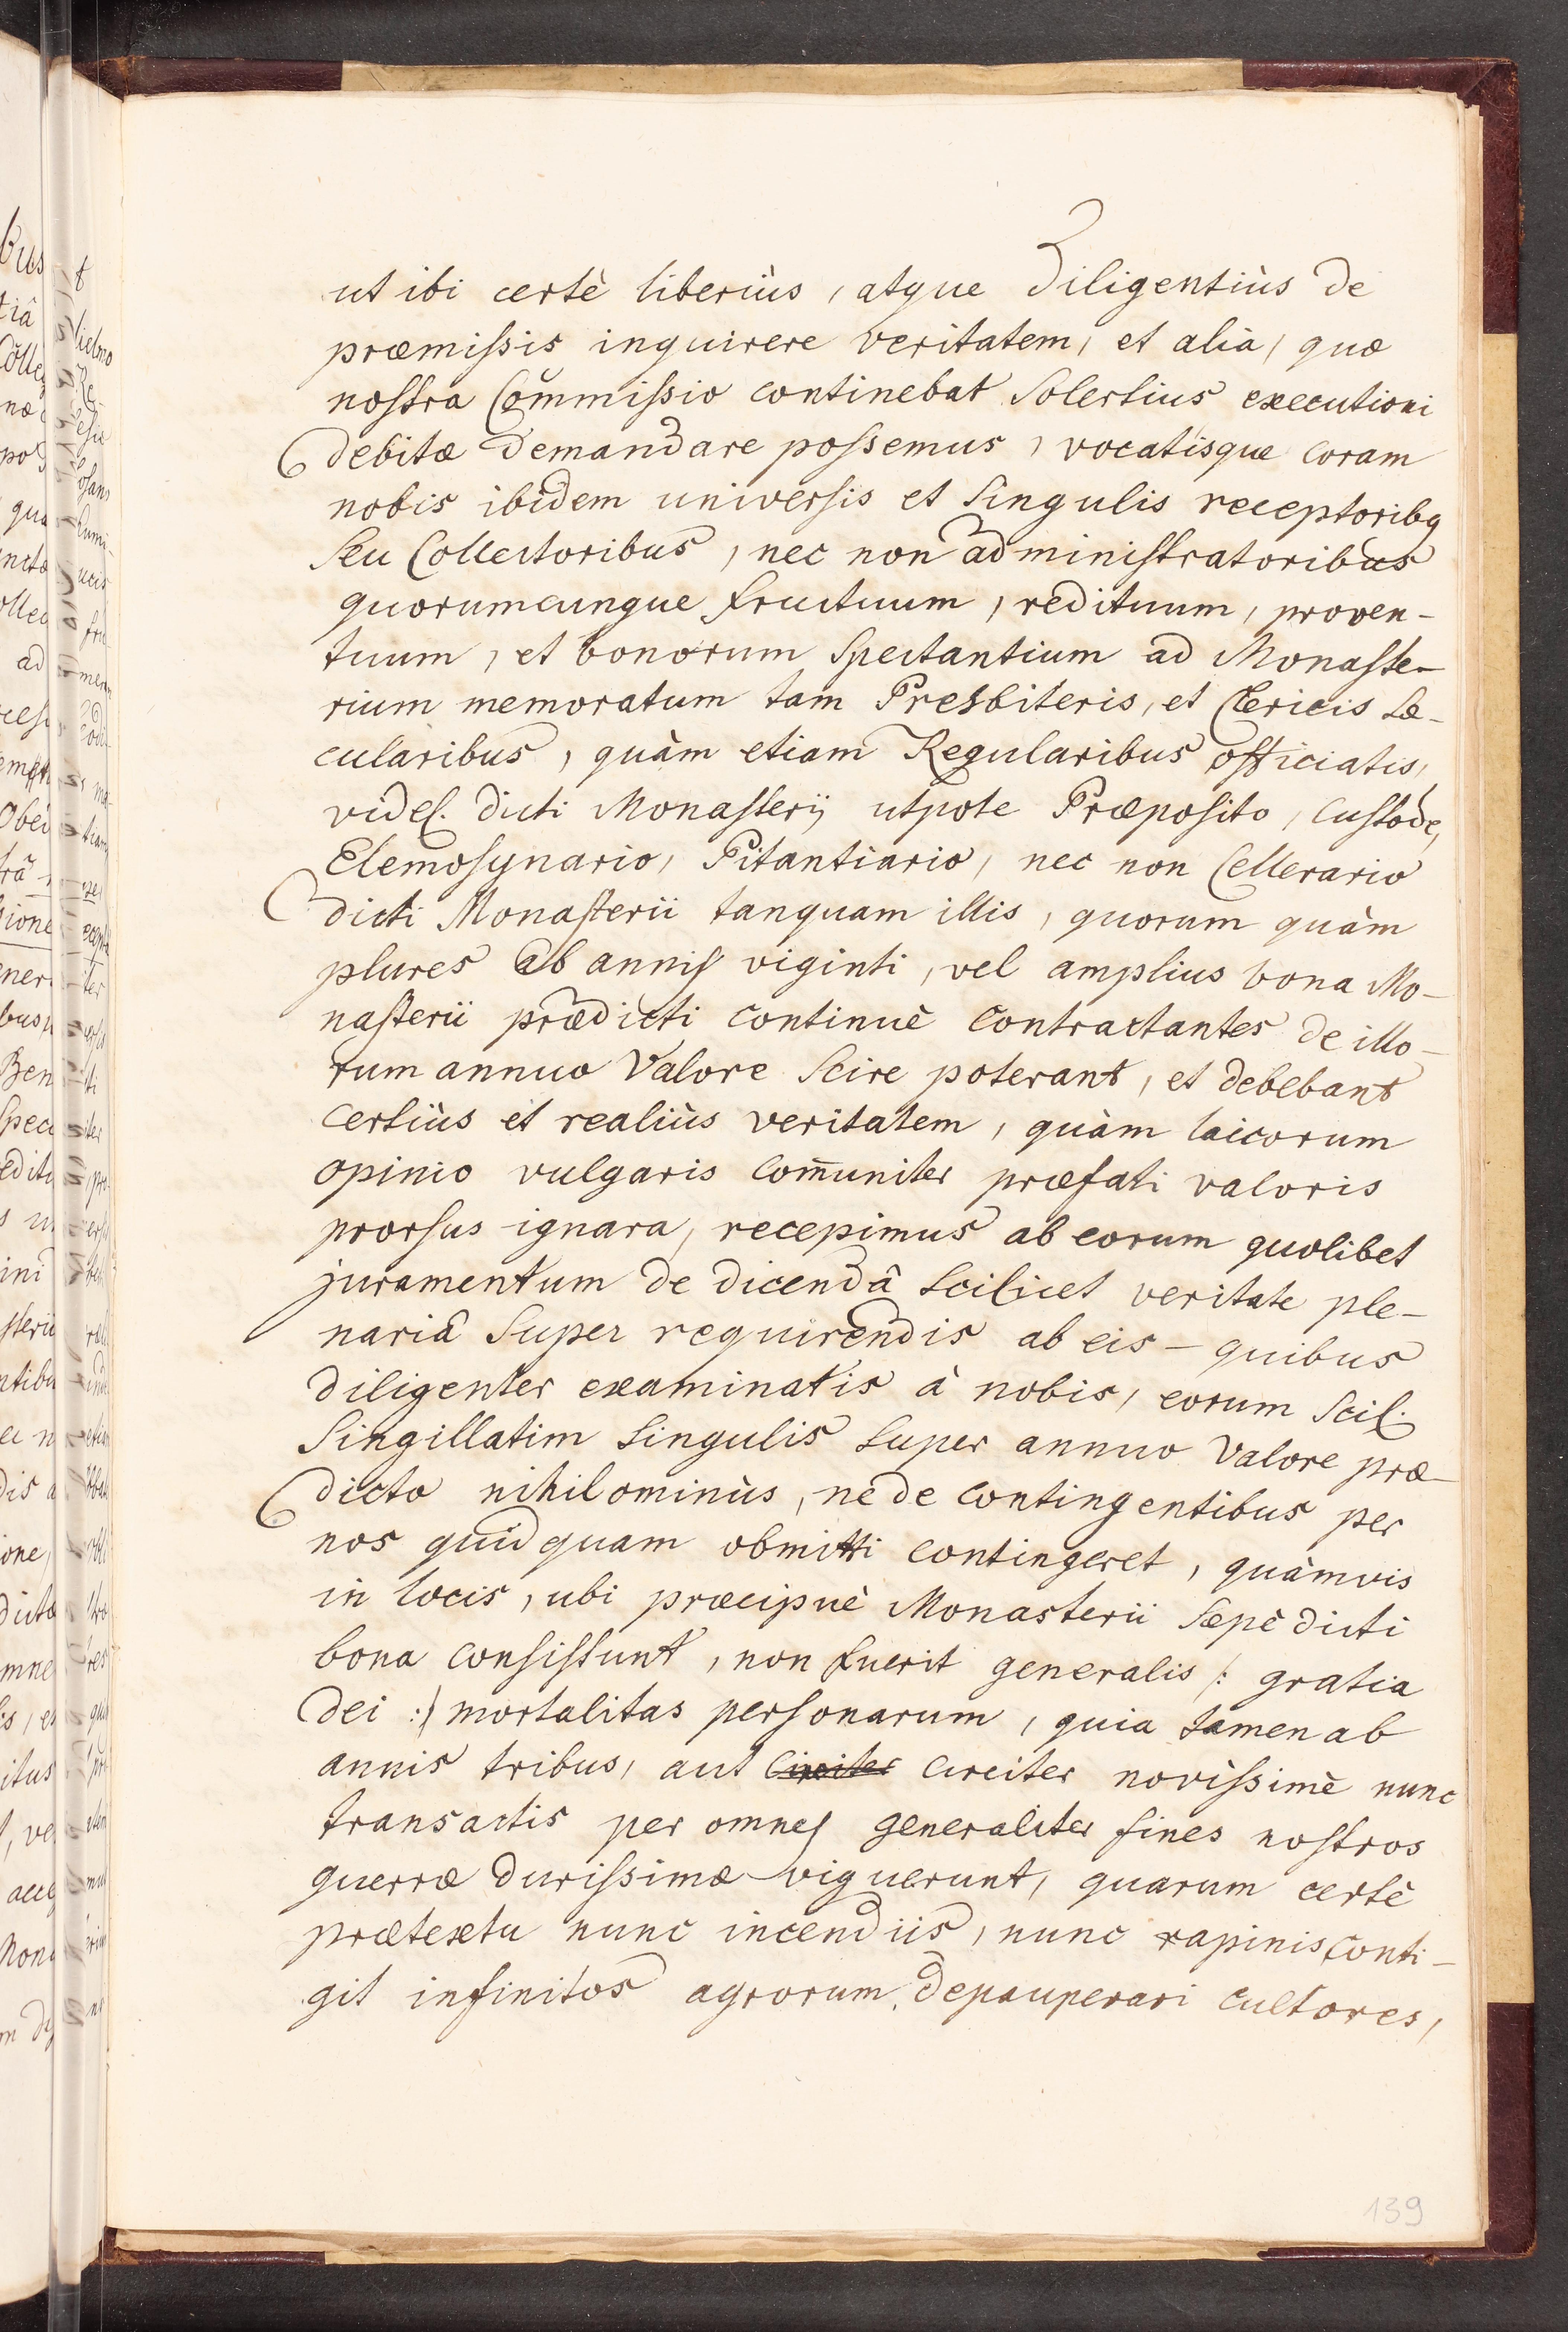 ut ibi certè liberiùs, atque diligentiùs de
præmissis inquirere veritatem, et alia, quæ
nostra Commissio continebat solertius executioni
debitæ demandare possemus, vocatisque coram
nobis ibidem universis et singulis receptoribq
seu Collectoribus, nec non administratoribus
quorumcunque fructuum, redituum, proven-
tuum, et bonorum spectantium ad Monaste-
rium memoratum tam Presbiteris, et Clericis sæ-
cularibus, quàm etiam Regularibus officiatis,
videl. dicti Monasterij utpote Præposito, Custode,
Elemosynario, Pitantiario, nec non Cellerario
dicti Monasterii tanquam illis, quorum quàm
plures ab annis viginti, vel amplius bona Mo-
nasterii prædicti continuè contractantes de illo-
rum annuo Valore scire poterant, et debebant
certiùs et realiùs veritatem, quàm laicorum
opinio vulgaris com̄uniter præfati valoris
prorsus ignara, recepimus ab eorum quolibet
juramentum de dicendâ scilicet veritate ple-
nariâ super requirendis ab eis - quibus
diligenter examinatis à nobis, eorum scil.
singillatim singulis super annuo Valore præ-
dicto nihilominùs, ne de contingentibus per
nos quidquam obmitti contingeret, quàmvis
in locis, ubi præcipuè Monasterii sæpè dicti
bona consistunt, non fuerit generalis /: gratia
dei :/ mortalitas personarum, quia tamen ab
annis tribus, aut circiter circiter novissimè nunc
transactis per omnes generaliter fines nostros
guerræ durissimæ viguerunt, quarum certè
prætextu nunc incendiis, nunc rapinis conti-
git infinitos agrorum depauperari cultores,
139